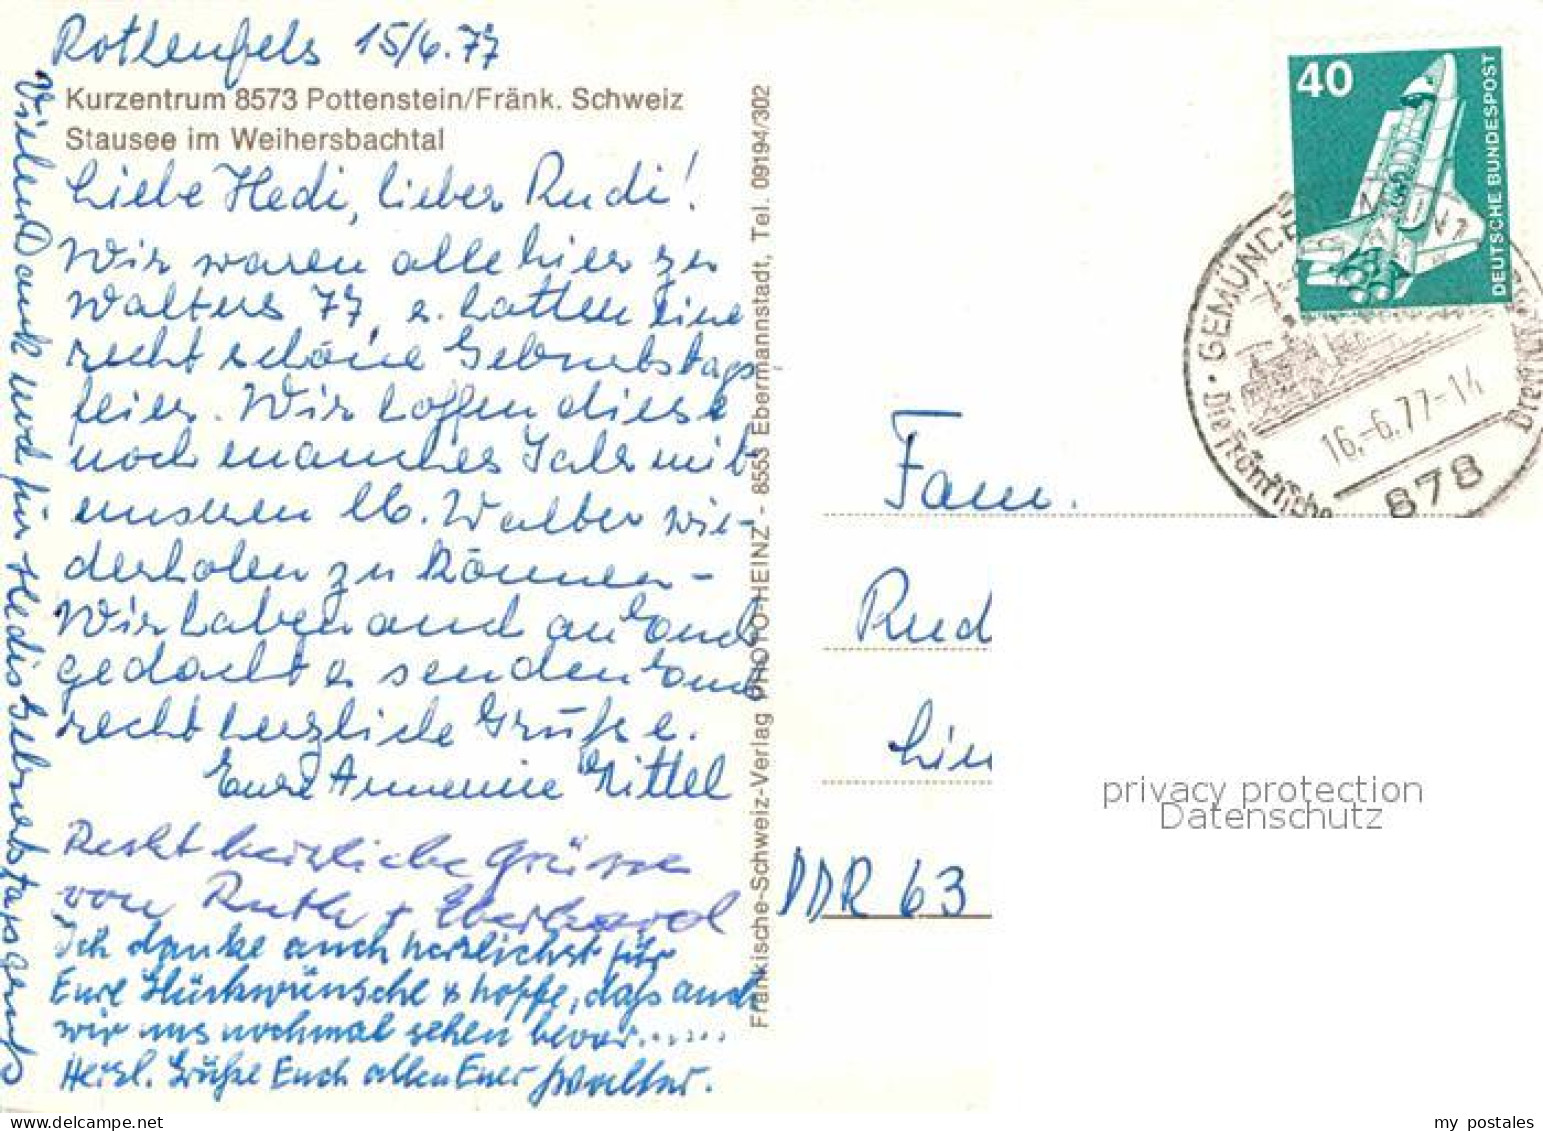 Rothenfels 15/6.77
Kurzentrum 8573 Pottenstein/Fränk. Schweiz
Stausee im Weihersbachtal
Liebe Hedi, lieber Rudi!
Wir waren alle hier zu
Walters 77. u. hatten eine
recht schöne Geburtstags
feier. Wir hoffen diese
noch manches Jahr mit
unseren lb. Walter wie-
derholen zu können -
Wir haben auch an Euch
gedacht u. senden Euch
recht herzliche Grüße.
Eure Annemie Zittel
Recht herzliche Grüsse
von Ruth + Eberhard
Ich danke auch herzlichst für
Eure Glückwünsche & hoffe, daß auch
wir uns nochmal sehen bevor......
Herzl. Grüße Euch allen Euer Walter.
Vielen Dank und für Hedis Geburtstagsgruß
Fränkische-Schweiz-Verlag PHOTO-HEINZ - 8553 Ebermannstadt, Tel. 09194/302
40
DEUTSCHE BUNDESPOST
GEMÜNDE
16.-6.77-14
878
Die Fränkische
Drei
Fam.
Rud
Lin
DDR 63
privacy protection
Datenschutz
my_postales